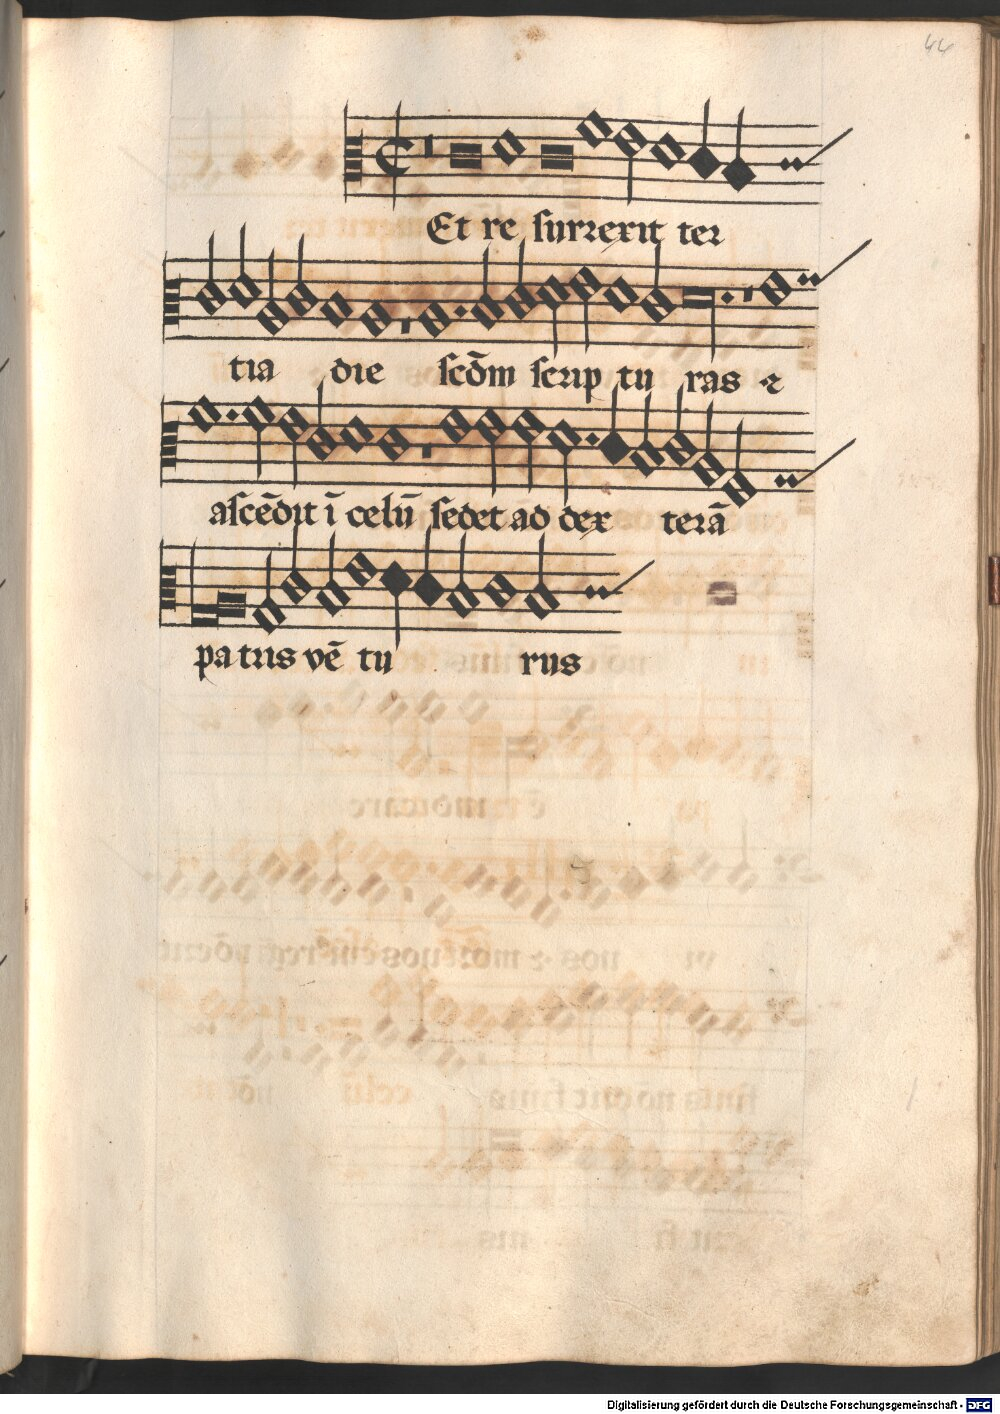 44
Et re surrexit ter
tia die scd̄m scrip tu ras ⁊
ascēdit ī celū sedet ad dex terā
patris vē tu rus
Digitalisierung gefördert durch die Deutsche Forschungsgemeinschaft - DFG